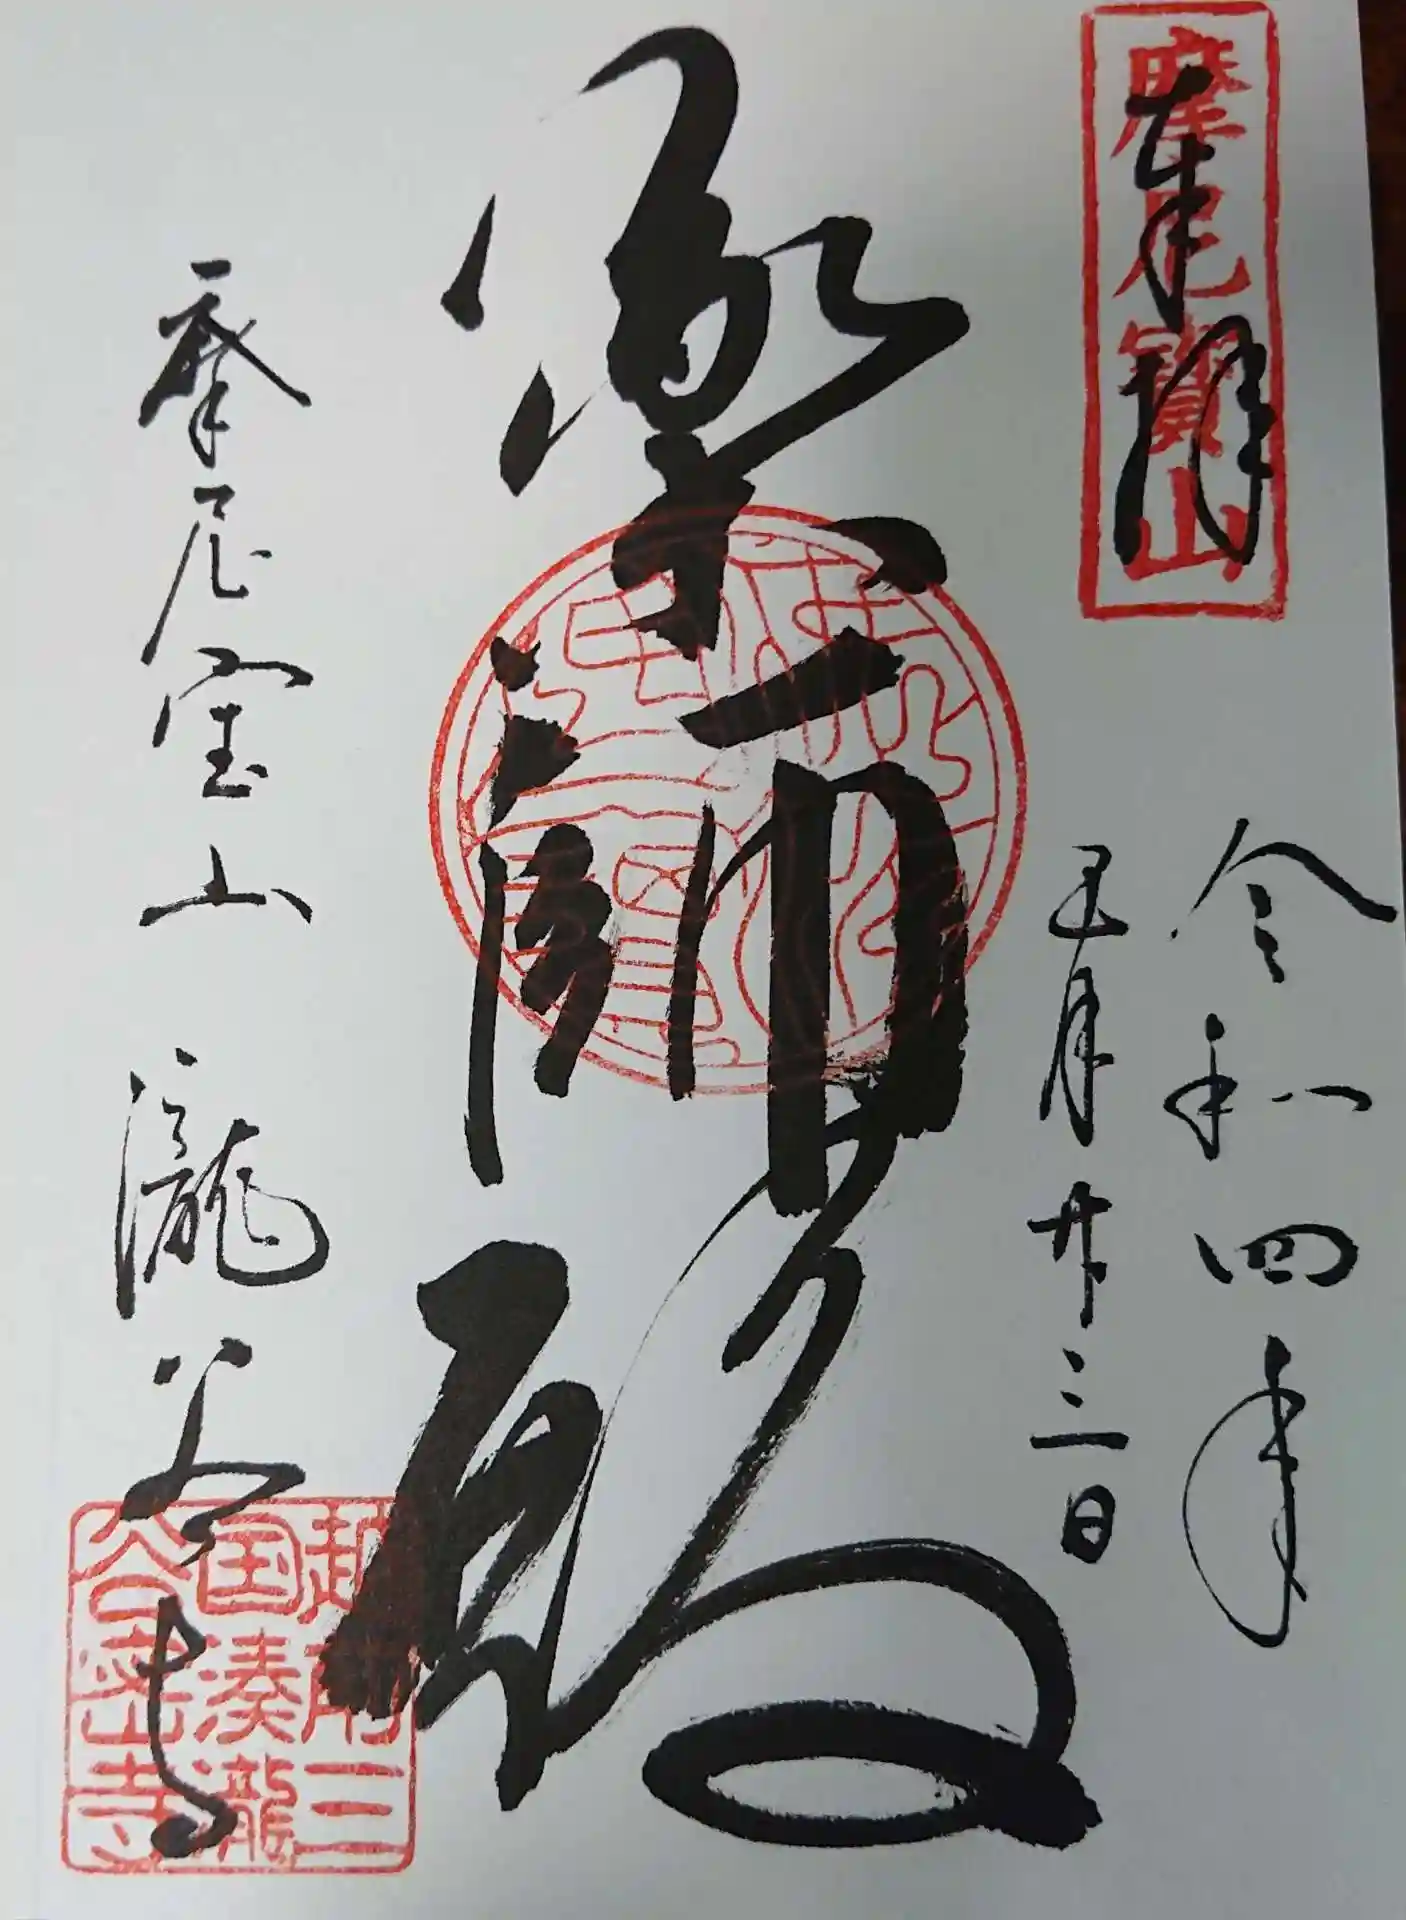 奉拝
摩尼寶山
令和四年
五月廿三日
薬師殿
摩尼宝山 瀧谷寺
越前三
国湊瀧
谷密寺